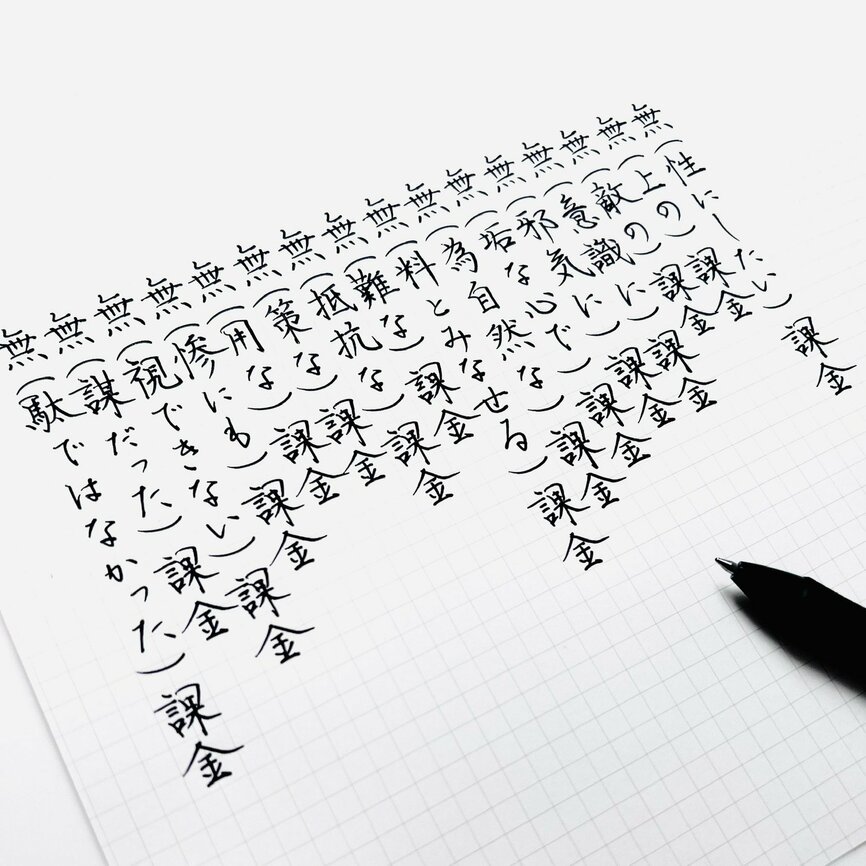 無（性にしたい）課金
無（上の）課金
無（敵の）課金
無（意識に）課金
無（邪気に）課金
無（垢な心で）課金
無（為自然な）課金
無（料とみなせる）課金
無（難な）課金
無（抵抗な）課金
無（策な）課金
無（用な）課金
無（惨にも）課金
無（視できない）課金
無（謀だった）課金
無（駄ではなかった）課金